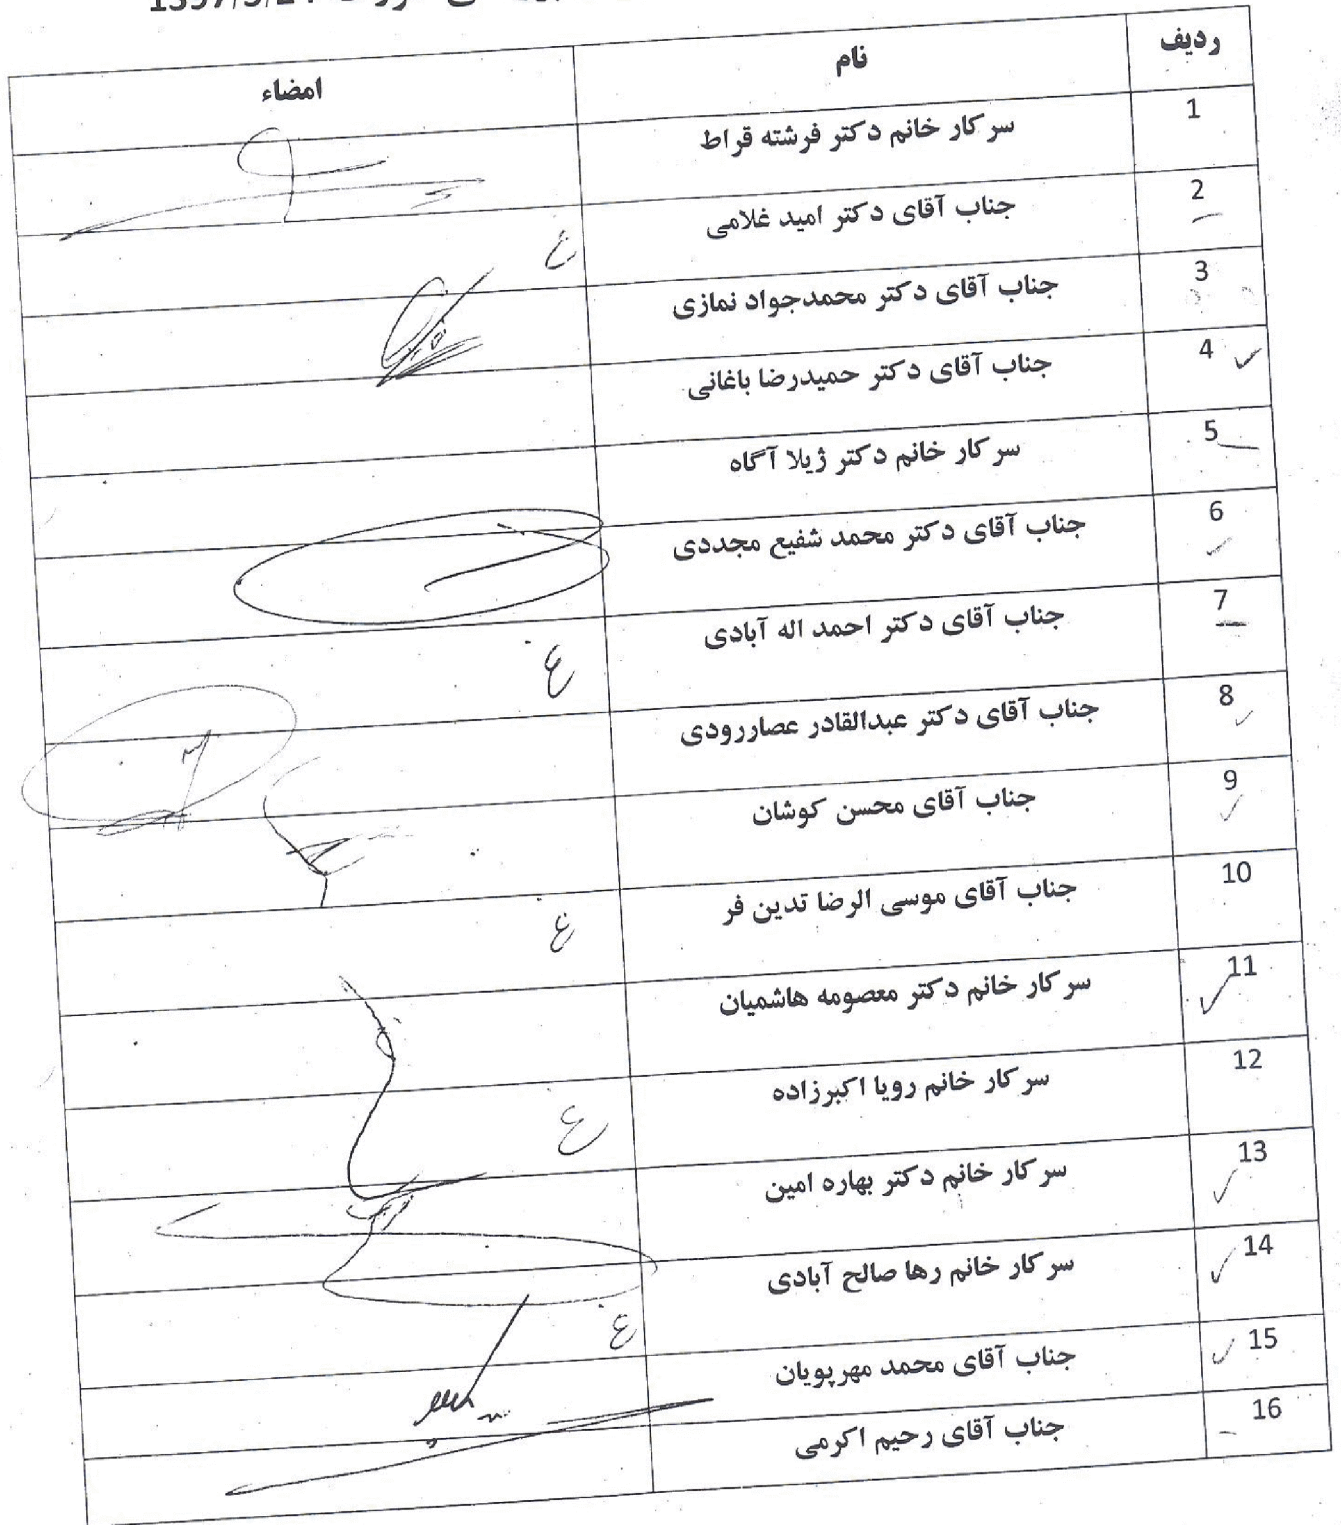 ردیف نام امضاء
1 سرکار خانم دکتر فرشته قراط
2 جناب آقای دکتر امید غلامی غ
3 جناب آقای دکتر محمدجواد نمازی
4 جناب آقای دکتر حمیدرضا باغانی
5 سرکار خانم دکتر ژیلا آگاه
6 جناب آقای دکتر محمد شفیع مجددی
7 جناب آقای دکتر احمد اله آبادی غ
8 جناب آقای دکتر عبدالقادر عصاررودی
9 جناب آقای محسن کوشان
10 جناب آقای موسی الرضا تدین فر غ
11 سرکار خانم دکتر معصومه هاشمیان
12 سرکار خانم رویا اکبرزاده غ
13 سرکار خانم دکتر بهاره امین
14 سرکار خانم رها صالح آبادی غ
15 جناب آقای محمد مهرپویان
16 جناب آقای رحیم اکرمی